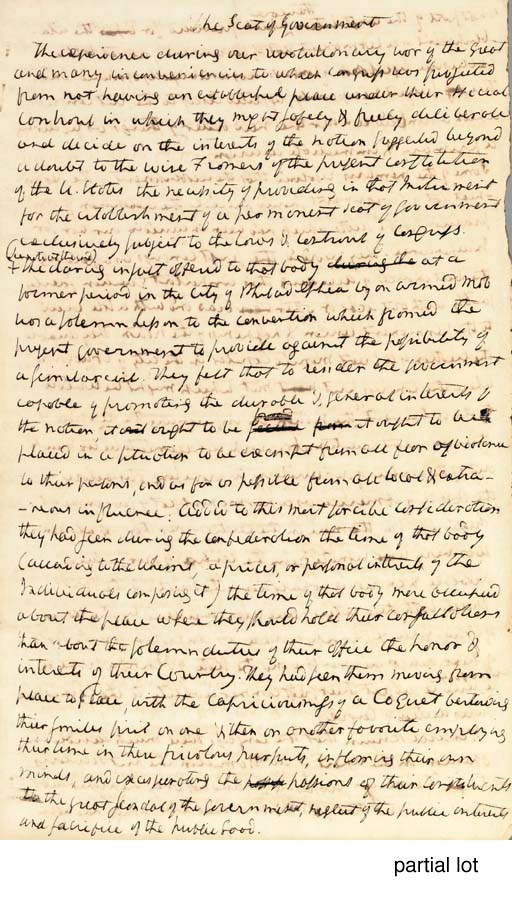 The Seat of Government
The experience during our revolutionary war of the great
and many inconveniencies to which congress was subjected
from not having an established place under their special
Controul in which they might safely & freely deliberate
and decide on the interests of the nation suggested beyond
a doubt to the wise Framers of the present constitution
of the U. States the necessity of providing in that Instrument
for the establishment of a permanent seat of Government
exclusively subject to the laws & controul of Congress.
the daring insult offered to that body during the at a
former period in the City of Philadelphia by an armed Mob
was a solemn lesson to the convention which framed the
present government to provide against the possibility of
a similar evil. They felt that to render the government
capable of promoting the durable & general interests of
the nation, it ought to be from it ought to be
placed in a situation to be exempt from all fear of violence
to their persons, and as far as possible from all local & extra-
-neous influence. Added to this most forcible consideration
they had seen during the confederation the time of that body
(according to the whims, caprices, or personal interests of the
Individuals composing it) the time of that body more occupied
about the place where they should hold their consultations
than about the solemn duties of their office the honor &
interests of their Country. They had seen them moving from
place to place with the capriciousness of a Coquet bestowing
their smiles first on one & then on another favorite employing
their time in these frivolous pursuits, inflaming their own
minds, and exasperating the passions of their constituents
to the great scandal of the Government, neglect of the public interests
and sacrifice of the public Good.
partial lot